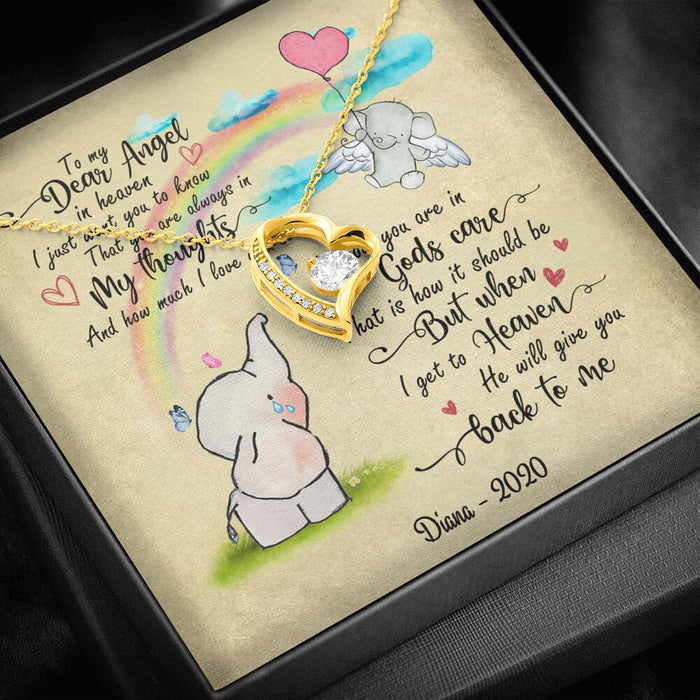 To my
Dear Angel
in heaven
I just want you to know
That you are always in
My thoughts
And how much I love
you are in
Gods care
is how it should be
But when
I get to Heaven
He will give you
back to me
Diana - 2020